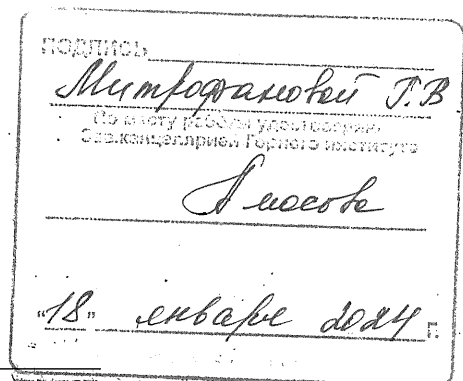 ПОДПИСЬ
Митрофановой Г.В
По месту работы удостоверяю
Зав.канцелярией Горного института
"18" января 2024 г.